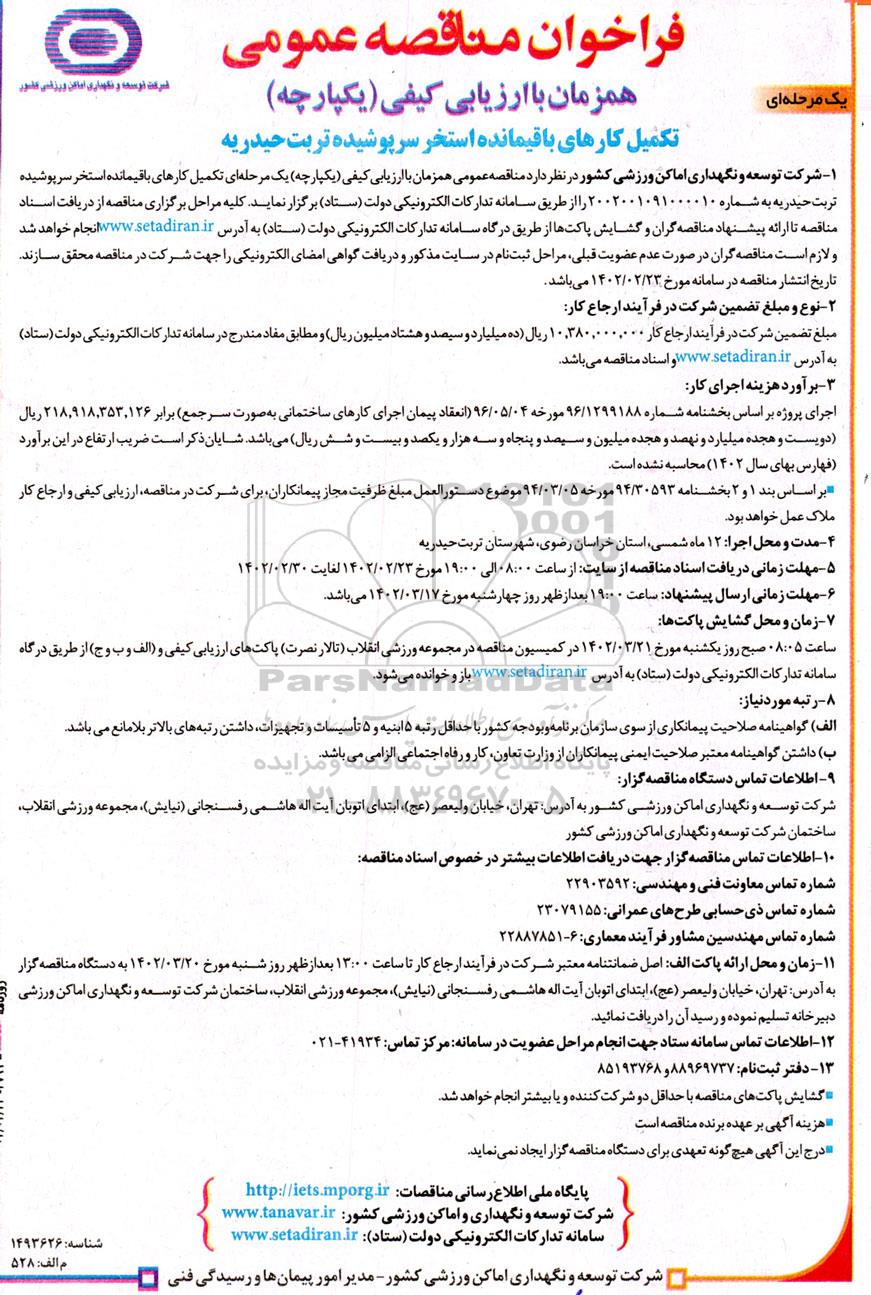 فراخوان مناقصه عمومی
همزمان با ارزیابی کیفی (یکپارچه)
یک مرحله‌ای
شرکت توسعه و نگهداری اماکن ورزشی کشور
تکمیل کارهای باقیمانده استخر سرپوشیده تربت‌حیدریه
۱-شرکت توسعه و نگهداری اماکن ورزشی کشور در نظر دارد مناقصه عمومی همزمان با ارزیابی کیفی (یکپارچه) یک مرحله‌ای تکمیل کارهای باقیمانده استخر سرپوشیده
تربت‌حیدریه به شماره ۲۰۰۲۰۰۱۰۹۱۰۰۰۰۱۰ را از طریق سامانه تدارکات الکترونیکی دولت (ستاد) برگزار نماید. کلیه مراحل برگزاری مناقصه از دریافت اسناد
مناقصه تا ارائه پیشنهاد مناقصه‌گران و گشایش پاکت‌ها از طریق درگاه سامانه تدارکات الکترونیکی دولت (ستاد) به آدرس www.setadiran.ir انجام خواهد شد
و لازم است مناقصه‌گران در صورت عدم عضویت قبلی، مراحل ثبت‌نام در سایت مذکور و دریافت گواهی امضای الکترونیکی را جهت شرکت در مناقصه محقق سازند.
تاریخ انتشار مناقصه در سامانه مورخ ۱۴۰۲/۰۲/۲۳ می‌باشد.
۲-نوع و مبلغ تضمین شرکت در فرآیند ارجاع کار:
مبلغ تضمین شرکت در فرآیند ارجاع کار ۱۰,۳۸۰,۰۰۰,۰۰۰ ریال (ده میلیارد و سیصد و هشتاد میلیون ریال) و مطابق مفاد مندرج در سامانه تدارکات الکترونیکی دولت (ستاد)
به آدرس www.setadiran.ir و اسناد مناقصه می‌باشد.
۳-برآورد هزینه اجرای کار:
اجرای پروژه بر اساس بخشنامه شماره ۹۶/۱۲۹۹۱۸۸ مورخه ۹۶/۰۵/۰۴ (انعقاد پیمان اجرای کارهای ساختمانی به‌صورت سرجمع) برابر ۲۱۸,۹۱۸,۳۵۳,۱۲۶ ریال
(دویست و هجده میلیارد و نهصد و هجده میلیون و سیصد و پنجاه و سه هزار و یکصد و بیست و شش ریال) می‌باشد. شایان‌ذکر است ضریب ارتفاع در این برآورد
(فهارس بهای سال ۱۴۰۲) محاسبه نشده است.
بر اساس بند ۱ و ۲ بخشنامه ۹۴/۳۰۵۹۳ مورخه ۹۴/۰۳/۰۵ موضوع دستورالعمل مبلغ ظرفیت مجاز پیمانکاران، برای شرکت در مناقصه، ارزیابی کیفی و ارجاع کار
ملاک عمل خواهد بود.
۴-مدت و محل اجرا: ۱۲ ماه شمسی، استان خراسان رضوی، شهرستان تربت‌حیدریه
۵-مهلت زمانی دریافت اسناد مناقصه از سایت: از ساعت ۰۸:۰۰ الی ۱۹:۰۰ مورخ ۱۴۰۲/۰۲/۲۳ لغایت ۱۴۰۲/۰۲/۳۰
۶-مهلت زمانی ارسال پیشنهاد: ساعت ۱۹:۰۰ بعدازظهر روز چهارشنبه مورخ ۱۴۰۲/۰۳/۱۷ می‌باشد.
۷-زمان و محل گشایش پاکت‌ها:
ساعت ۰۸:۰۵ صبح روز یکشنبه مورخ ۱۴۰۲/۰۳/۲۱ در کمیسیون مناقصه در مجموعه ورزشی انقلاب (تالار نصرت) پاکت‌های ارزیابی کیفی و (الف و ب و ج) از طریق درگاه
سامانه تدارکات الکترونیکی دولت (ستاد) به آدرس www.setadiran.ir باز و خوانده می‌شود.
ParsNamadData
۸-رتبه موردنیاز:
الف) گواهینامه صلاحیت پیمانکاری از سوی سازمان برنامه‌وبودجه کشور با حداقل رتبه ۵ ابنیه و ۵ تأسیسات و تجهیزات، داشتن رتبه‌های بالاتر بلامانع می باشد.
ب) داشتن گواهینامه معتبر صلاحیت ایمنی پیمانکاران از وزارت تعاون، کار و رفاه اجتماعی الزامی می باشد.
پایگاه اطلاع رسانی مناقصه و مزایده
۹-اطلاعات تماس دستگاه مناقصه‌گزار:
۰۲۱-۸۸۳۴۹۶۷۰-۵
شرکت توسعه و نگهداری اماکن ورزشی کشور به آدرس: تهران، خیابان ولیعصر (عج)، ابتدای اتوبان آیت اله هاشمی رفسنجانی (نیایش)، مجموعه ورزشی انقلاب،
ساختمان شرکت توسعه و نگهداری اماکن ورزشی کشور
۱۰-اطلاعات تماس مناقصه‌گزار جهت دریافت اطلاعات بیشتر در خصوص اسناد مناقصه:
شماره تماس معاونت فنی و مهندسی: ۲۲۹۰۳۵۹۲
شماره تماس ذی‌حسابی طرح‌های عمرانی: ۲۳۰۷۹۱۵۵
شماره تماس مهندسین مشاور فرآیند معماری: ۶-۲۲۸۸۷۸۵۱
۱۱-زمان و محل ارائه پاکت الف: اصل ضمانتنامه معتبر شرکت در فرآیند ارجاع کار تا ساعت ۱۳:۰۰ بعدازظهر روز شنبه مورخ ۱۴۰۲/۰۳/۲۰ به دستگاه مناقصه‌گزار
به آدرس: تهران، خیابان ولیعصر (عج)، ابتدای اتوبان آیت اله هاشمی رفسنجانی (نیایش)، مجموعه ورزشی انقلاب، ساختمان شرکت توسعه و نگهداری اماکن ورزشی
دبیرخانه تسلیم نموده و رسید آن را دریافت نمائید.
۱۲-اطلاعات تماس سامانه ستاد جهت انجام مراحل عضویت در سامانه: مرکز تماس: ۴۱۹۳۴-۰۲۱
۱۳-دفتر ثبت‌نام: ۸۸۹۶۹۷۳۷ و ۸۵۱۹۳۷۶۸
گشایش پاکت‌های مناقصه با حداقل دو شرکت‌کننده و یا بیشتر انجام خواهد شد.
هزینه آگهی بر عهده برنده مناقصه است
درج این آگهی هیچ‌گونه تعهدی برای دستگاه مناقصه‌گزار ایجاد نمی‌نماید.
پایگاه ملی اطلاع‌رسانی مناقصات: http://iets.mporg.ir
شرکت توسعه و نگهداری و اماکن ورزشی کشور: www.tanavar.ir
سامانه تدارکات الکترونیکی دولت (ستاد): www.setadiran.ir
شناسه: ۱۴۹۳۶۲۶
م الف: ۵۲۸
شرکت توسعه و نگهداری اماکن ورزشی کشور - مدیر امور پیمان‌ها و رسیدگی فنی